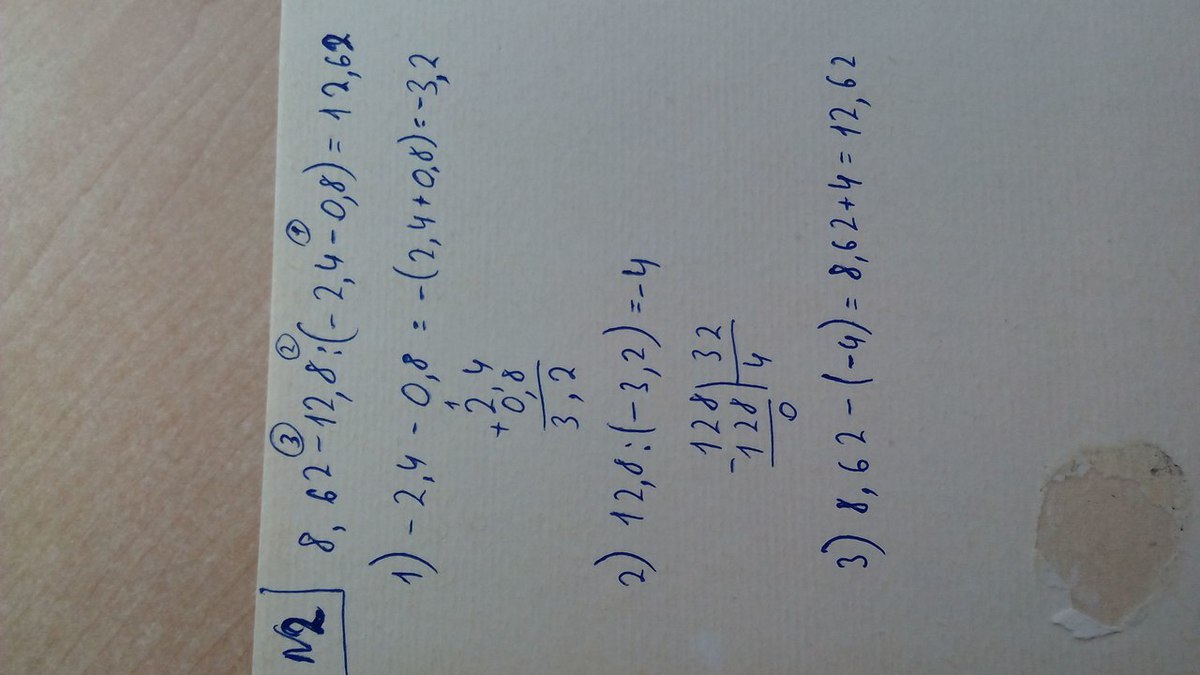 №2
8,62-12,8:(-2,4-0,8)=12,62
③ ② ①
1) -2,4-0,8=-(2,4+0,8)=-3,2
1
+2,4
0,8
3,2
2) 12,8:(-3,2)=-4
128 32
-128 4
0
3) 8,62-(-4)=8,62+4=12,62